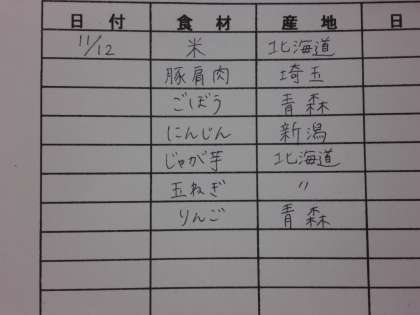 日付 食材 産地 日
11/12 米 北海道
豚肩肉 埼玉
ごぼう 青森
にんじん 新潟
じゃが芋 北海道
玉ねぎ 〃
りんご 青森